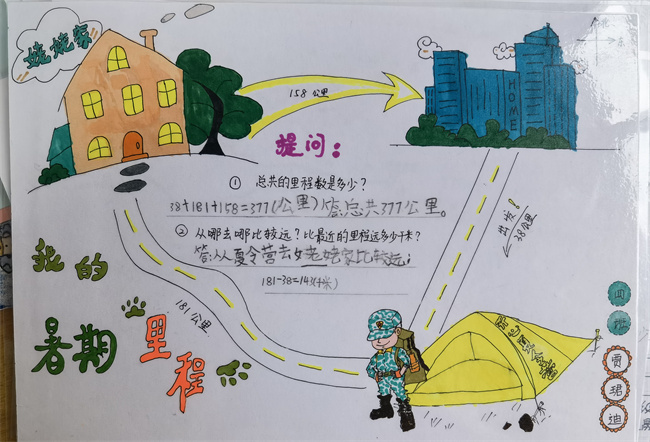 姥姥家
北
158公里
HOME
提问：
① 总共的里程数是多少？
38+181+158=377(公里)答:总共377公里。
② 从哪去哪比较远？比最近的里程远多少千米？
答:从夏令营去姥姥家比较远；
181-38=143(千米)
出发！
38公里
181公里
我的
暑期里程
四班
贾珺迪